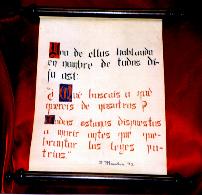 Uno de ellos hablando
en nombre de todos di-
jo así:
¿ Qué buscais a qué
quereis de nosotros ?
Todos estamos dispuestos
a morir antes que que-
brantar las leyes pa-
trias."
2 Macabeo